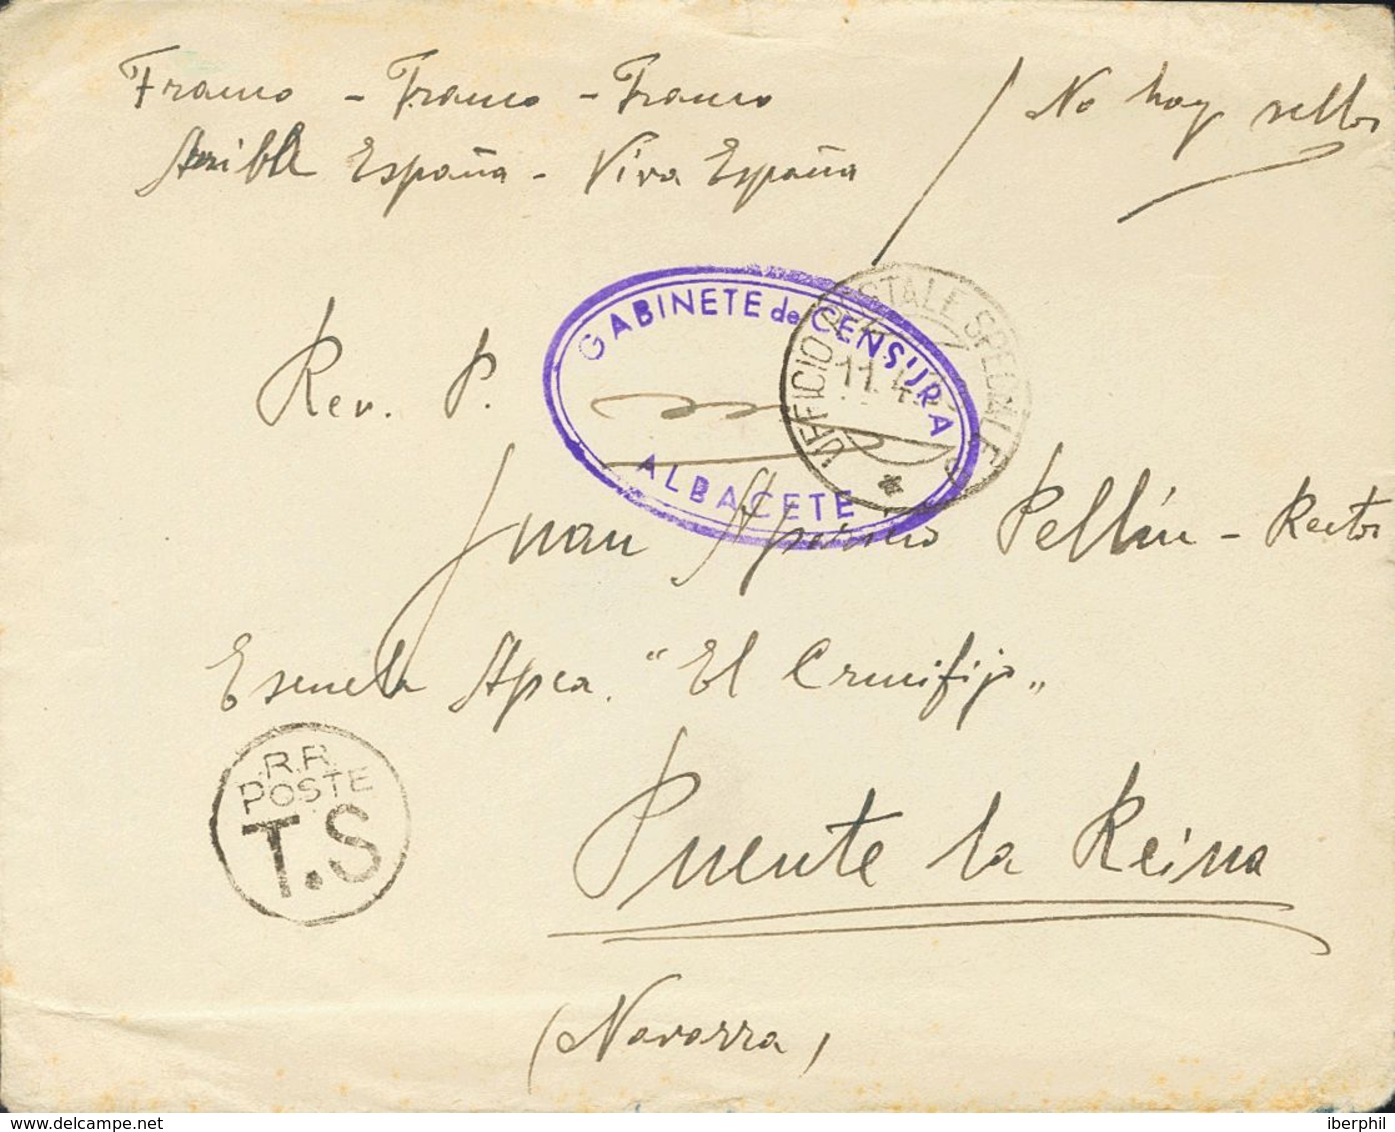 Franco - Franco - Franco
Arriba España - Viva España
/ No hay sellos
GABINETE de CENSURA
ALBACETE
UFFICIO POSTALE SPECIALE
11.4.
Rev. P.
Juan Pellín - Rector
Escuela Apca. "El Crucifijo"
R.R.
POSTE
T.S
Puente la Reina
(Navarra)
delcampe.net
iberphil